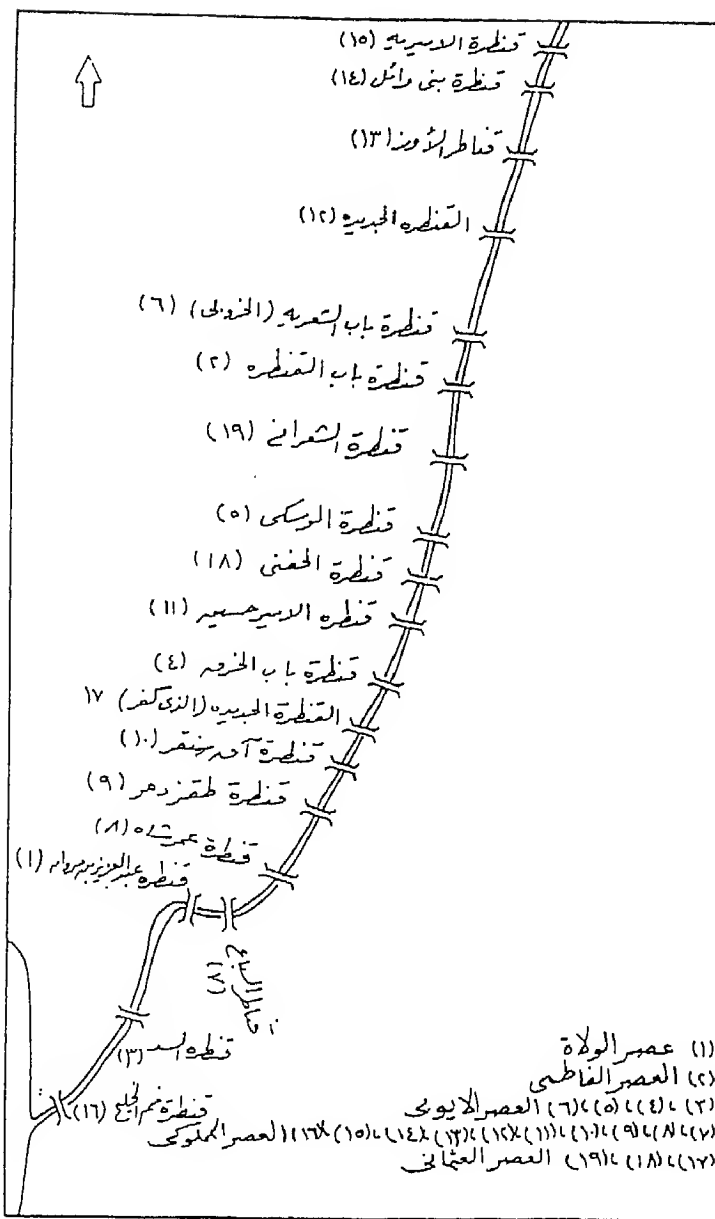 قنطرة الاميريه (١٥)
قنطرة بنى وائل (١٤)
قناطر الأوز (١٣)
القنطره الجديده (١٢)
قنطرة باب الشعريه (الخروبى) (٦)
قنطرة باب القنطره (٢)
قنطرة الشعرانى (١٩)
قنطرة الموسكى (٥)
قنطرة الحفنى (١٨)
قنطره الامير حسين (١١)
قنطرة باب الخرق (٤)
القنطرة الجديده (الذى كفر) ١٧
قنطرة آق سنقر (١٠)
قنطرة طقزدمر (٩)
قنطرة عمر شاه (٨)
قنطره عبد العزيز بن مروان (١)
قناطر السباع (٧)
قنطره السد (٣)
قنطرة فم الخليج (١٦)
(١) عصر الولاة
(٢) العصر الفاطمى
(٣)،(٤)،(٥)،(٦) العصر الايوبى
(٧)،(٨)،(٩)،(١٠)،(١١)،(١٢)،(١٣)،(١٤)،(١٥)،(١٦) العصر المملوكى
(١٧)،(١٨)،(١٩) العصر العثمانى